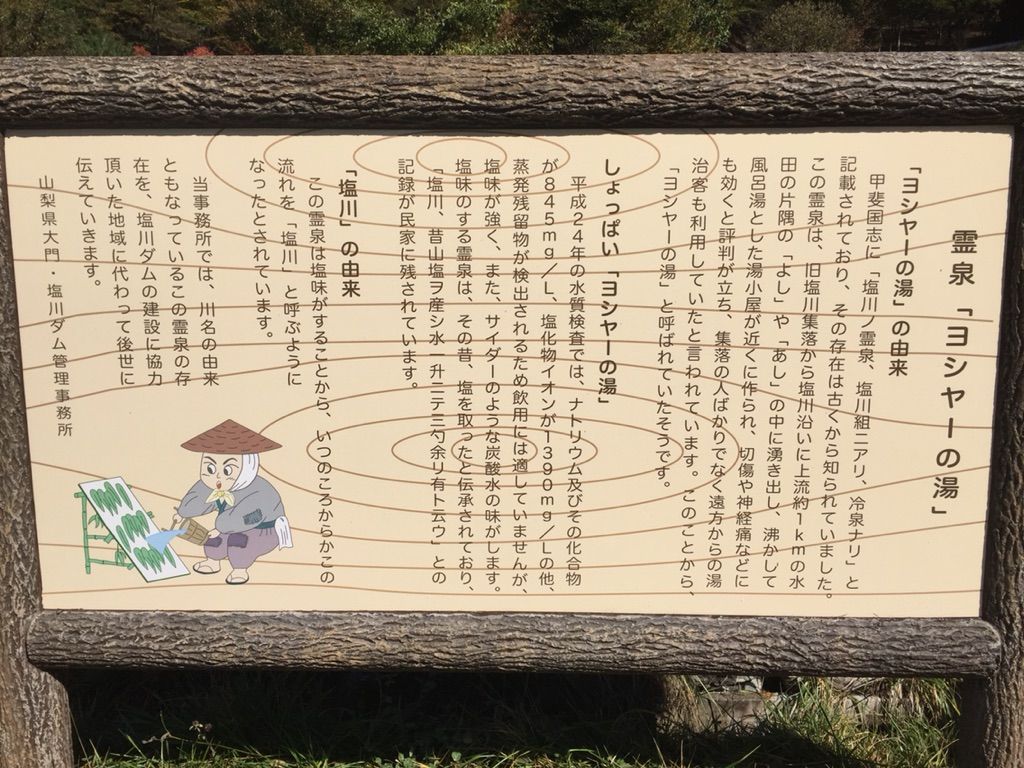 霊泉「ヨシヤーの湯」
「ヨシヤーの湯」の由来
甲斐国志に「塩川ノ霊泉、塩川組ニアリ、冷泉ナリ」と
記載されており、その存在は古くから知られていました。
この霊泉は、旧塩川集落から塩川沿いに上流約1kmの水
田の片隅の「よし」や「あし」の中に湧き出し、沸かして
風呂湯とした湯小屋が近くに作られ、切傷や神経痛などに
も効くと評判が立ち、集落の人ばかりでなく遠方からの湯
治客も利用していたと言われています。このことから、
「ヨシヤーの湯」と呼ばれていたそうです。
しょっぱい「ヨシヤーの湯」
平成24年の水質検査では、ナトリウム及びその化合物
が845mg/L、塩化物イオンが1390mg/Lの他、
蒸発残留物が検出されるため飲用には適していませんが、
塩味が強く、また、サイダーのような炭酸水の味がします。
塩味のする霊泉は、その昔、塩を取ったと伝承されており、
「塩川、昔山塩ヲ産シ水一升ニテ三勺余リ有ト云ウ」との
記録が民家に残されています。
「塩川」の由来
この霊泉は塩味がすることから、いつのころからかこの
流れを「塩川」と呼ぶように
なったとされています。
当事務所では、川名の由来
ともなっているこの霊泉の存
在を、塩川ダムの建設に協力
頂いた地域に代わって後世に
伝えていきます。
山梨県大門・塩川ダム管理事務所